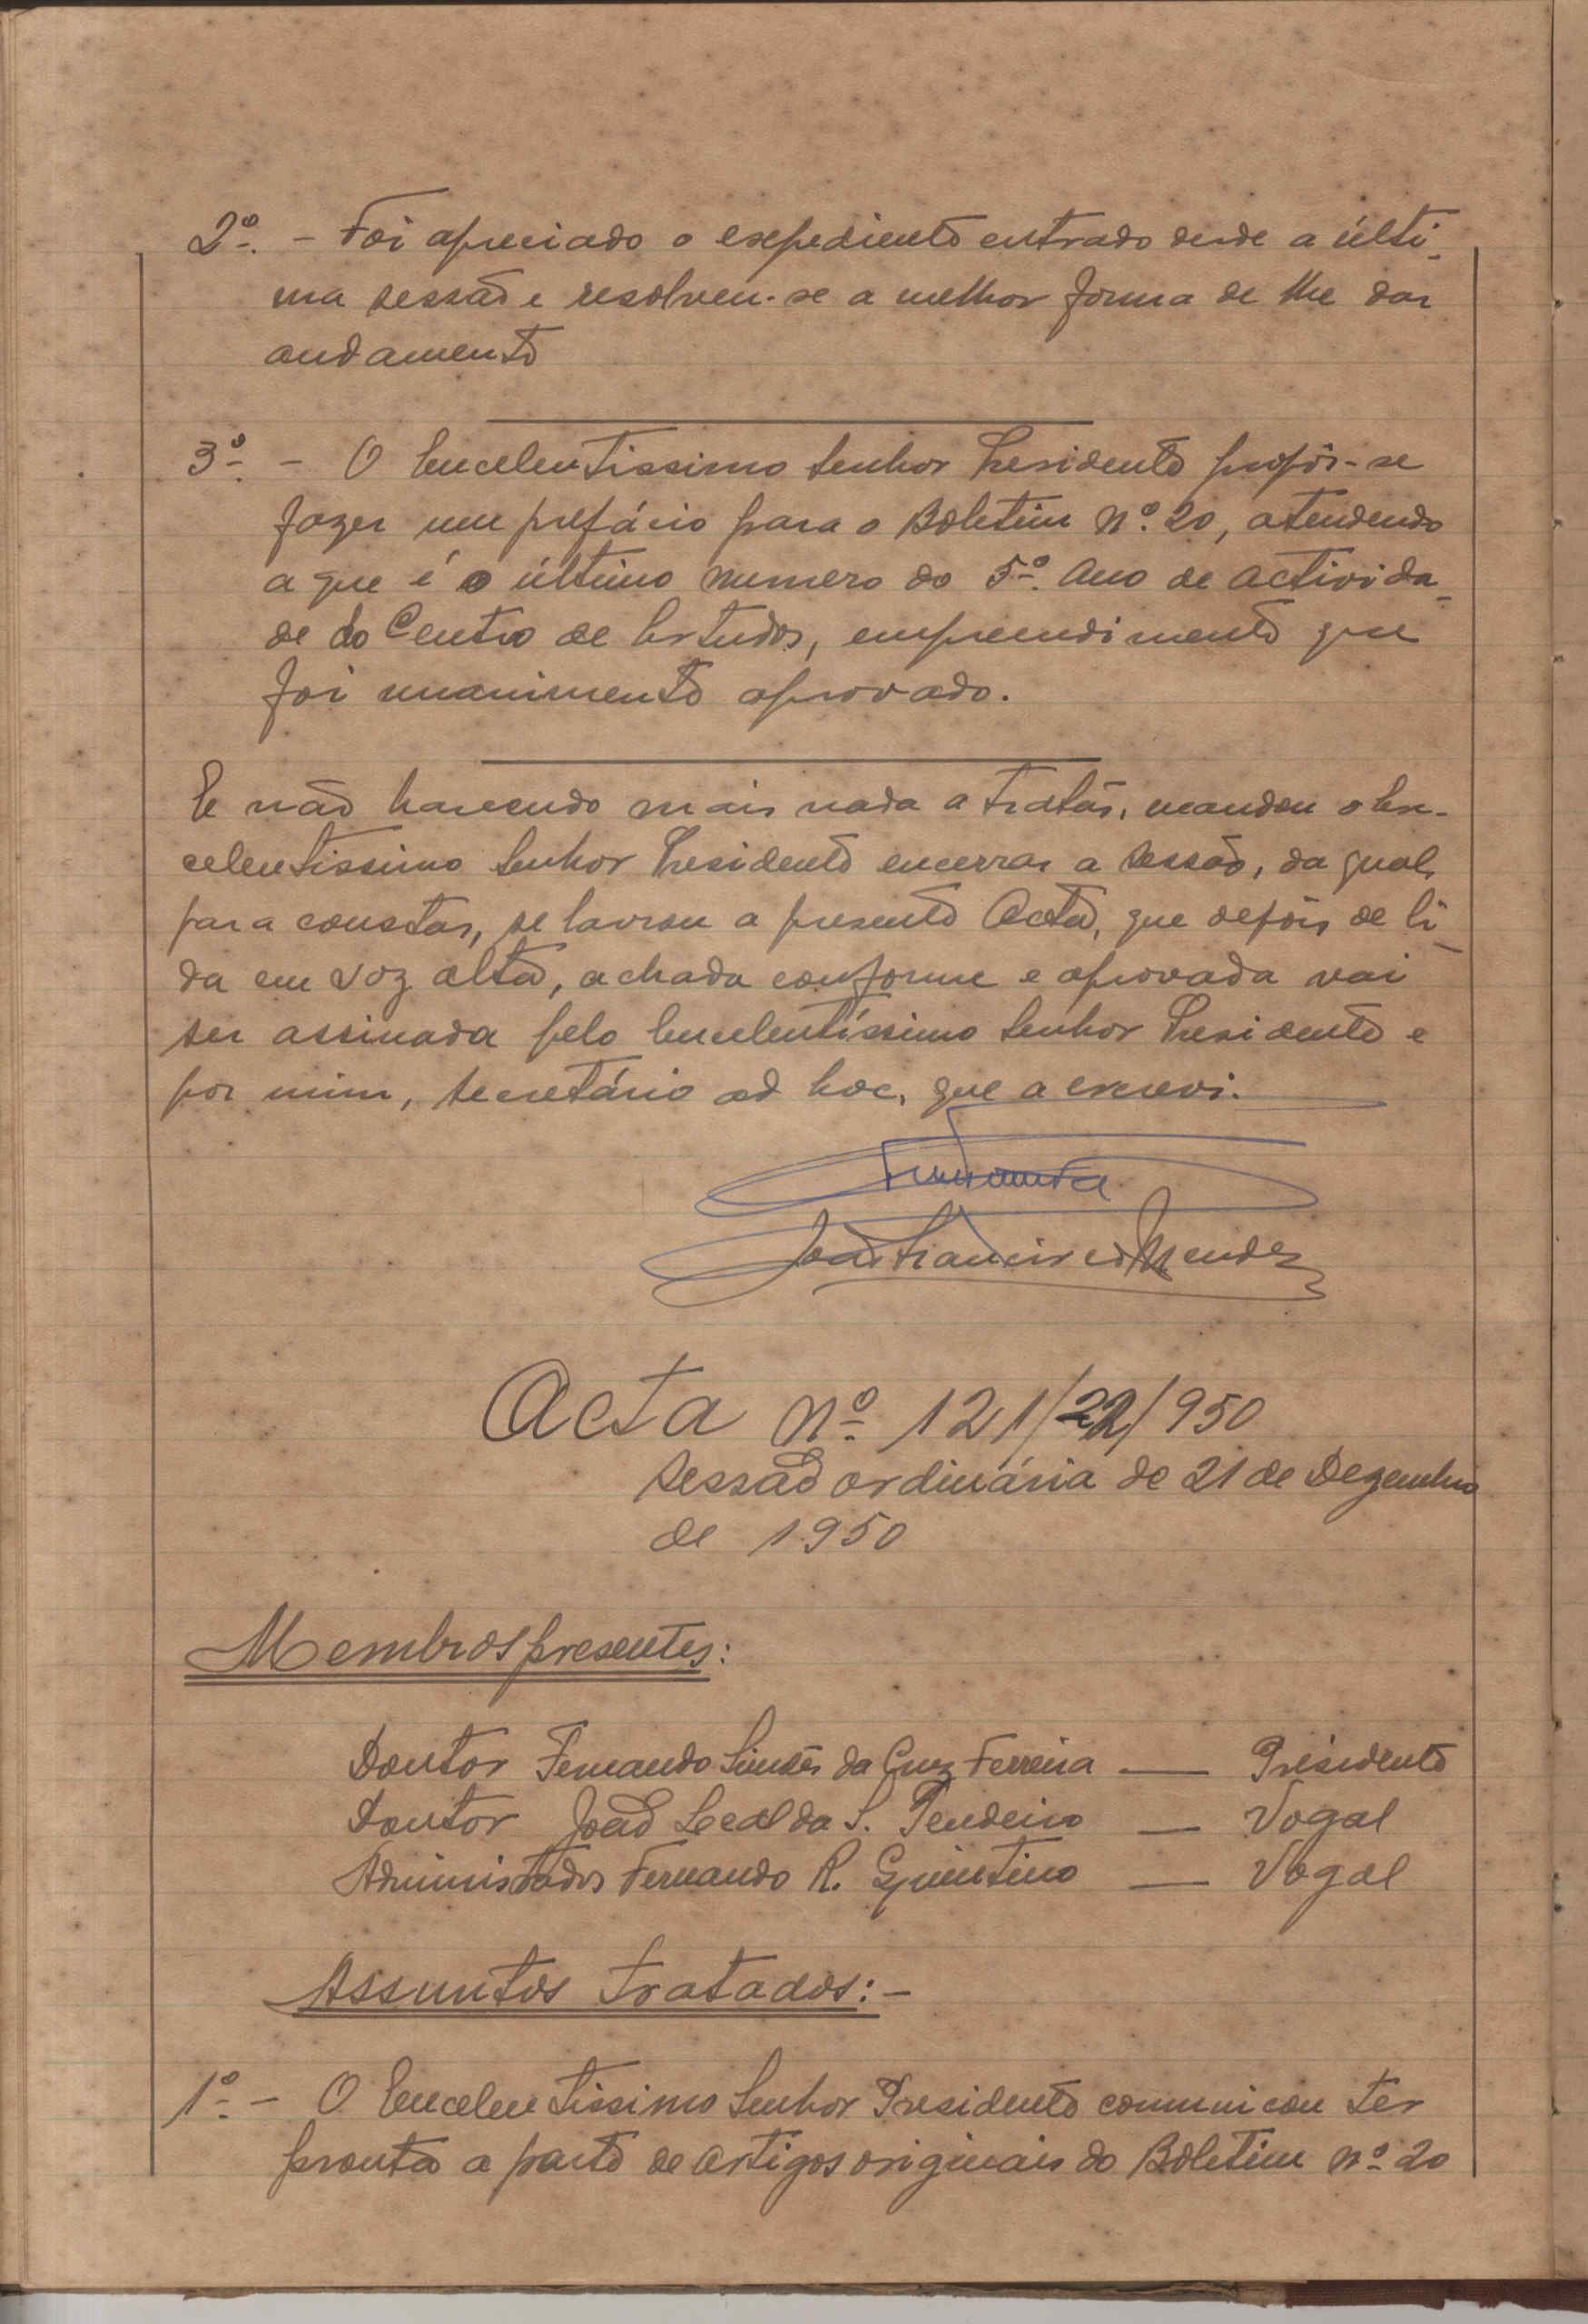 2º. - Foi apreciado o expediente entrado desde a últi-
ma sessão e resolveu-se a melhor forma de lhe dar
andamento
3º. - O Excelentissimo Senhor Presidente propôs-se
fazer um prefácio para o Boletim nº. 20, atendendo
a que é o último numero do 5º. Ano de activida-
de do Centro de Estudos, empreendimento que
foi unanimente aprovado.
E não havendo mais nada a tratar, mandou o Ex-
celentissimo Senhor Presidente encerrar a sessão, da qual,
para constar, se lavrou a presente Acta, que depois de li-
da em voz alta, achada conforme e aprovada vai
ser assinada pelo Excelentíssimo Senhor Presidente e
por mim, secretário ad hoc, que a escrevi.
João Francisco Mendes
Acta nº. 121/22/950
Sessão ordinária de 21 de Dezembro
de 1950
Membros presentes:
Doutor Fernando Simões da Cruz Ferreira — Presidente
Doutor João Leal da S. Tendeiro — Vogal
Administrador Fernando R. Quintino — Vogal
Assuntos tratados: -
1º. - O Excelentissimo Senhor Presidente comunicou ter
pronta a parte de artigos originais do Boletim nº. 20